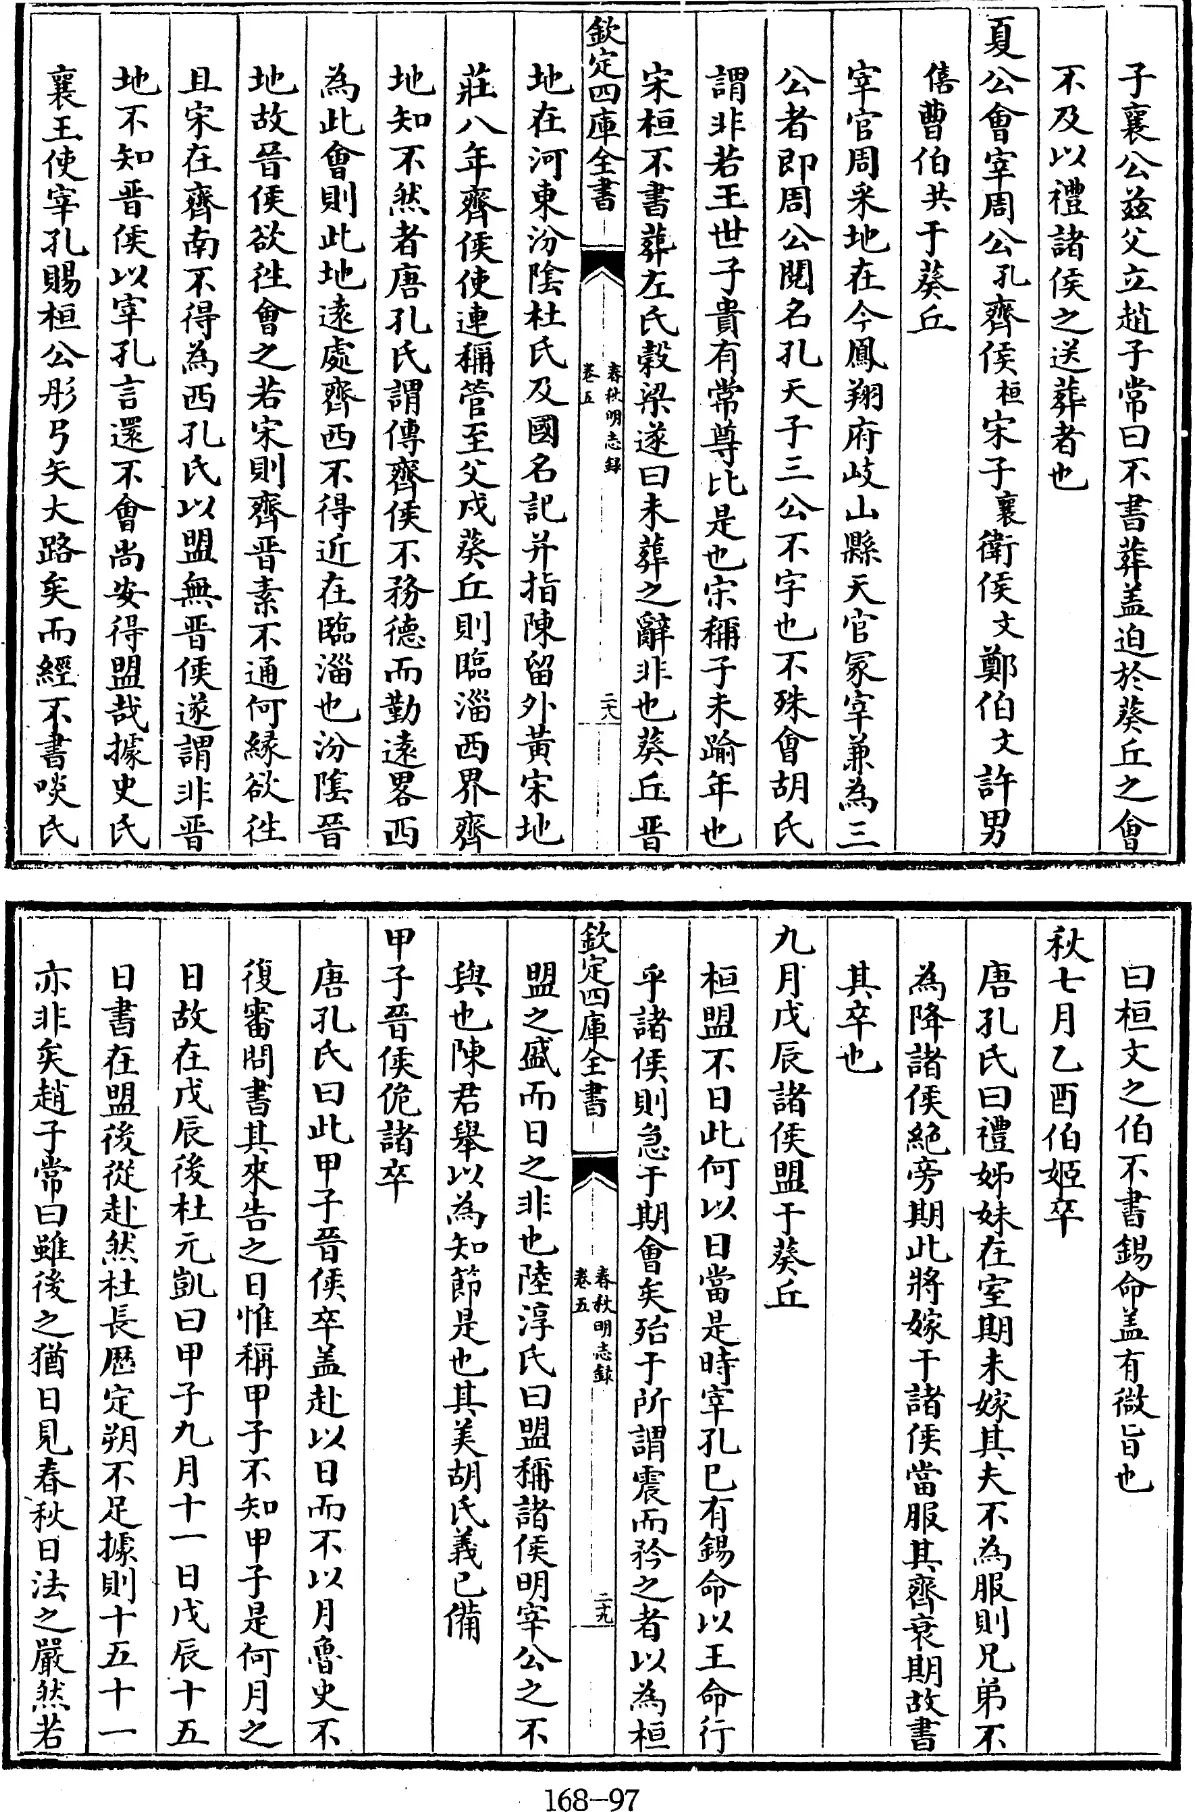 子襄公茲父立趙子常曰不書葬盖迫於葵丘之會
不及以禮諸侯之送葬者也
夏公會宰周公孔齊侯桓宋子襄衛侯文鄭伯文許男
僖曹伯共于葵丘
宰官周采地在今鳳翔府岐山縣天官冡宰兼為三
公者即周公閱名孔天子三公不字也不殊會胡氏
謂非若王世子貴有常尊比是也宋稱子未踰年也
宋桓不書葬左氏榖梁遂曰未葬之辭非也葵丘晋
欽定四庫全書
春秋明志録
卷五
二十八
地在河東汾陰杜氏及國名記并指陳留外黄宋地
莊八年齊侯使連稱管至父戍葵丘則臨淄西界齊
地知不然者唐孔氏謂傳齊侯不務德而勤遠畧西
為此會則此地遠處齊西不得近在臨淄也汾陰晉
地故晉侯欲徃會之若宋則齊晋素不通何緣欲徃
且宋在齊南不得為西孔氏以盟無晋侯遂謂非晋
地不知晋侯以宰孔言還不會尚安得盟哉據史氏
襄王使宰孔賜桓公彤弓矢大路矣而經不書啖氏
曰桓文之伯不書錫命盖有微旨也
秋七月乙酉伯姬卒
唐孔氏曰禮姊妹在室期未嫁其夫不為服則兄弟不
為降諸侯絶旁期此將嫁于諸侯當服其齊衰期故書
其卒也
九月戊辰諸侯盟于葵丘
桓盟不日此何以日當是時宰孔已有錫命以王命行
乎諸侯則急于期會矣殆于所謂震而矜之者以為桓
欽定四庫全書
春秋明志録
卷五
二十九
盟之盛而日之非也陸淳氏曰盟稱諸侯明宰公之不
與也陳君舉以為知節是也其美胡氏義已備
甲子晉侯佹諸卒
唐孔氏曰此甲子晉侯卒盖赴以日而不以月魯史不
復審問書其來告之日惟稱甲子不知甲子是何月之
日故在戊辰後杜元凱曰甲子九月十一日戊辰十五
日書在盟後從赴然杜長歴定朔不足據則十五十一
亦非矣趙子常曰雖後之猶日見春秋日法之嚴然若
168-97